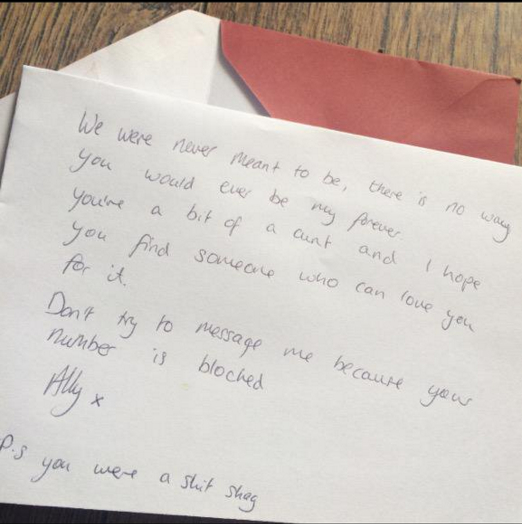 We were never meant to be, there is no way
you would ever be my forever
you're a bit of a cunt and I hope
you find someone who can love you
for it.
Don't try to message me because your
number is blocked
Ally x
P.S you were a shit shag